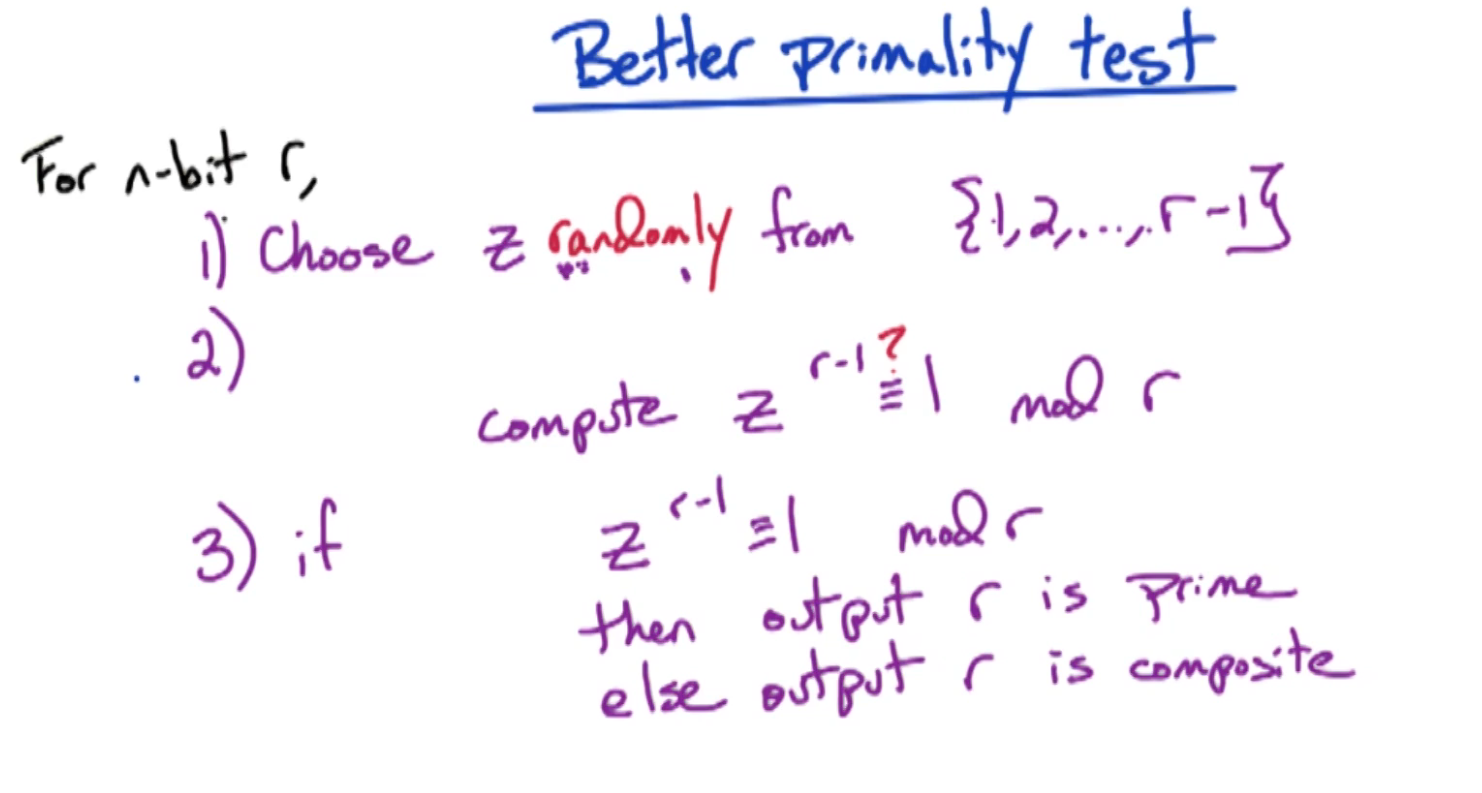 Better primality test
For n-bit r,
1) Choose z randomly from {1,2,...,r-1}
2)
compute z^{r-1} ≡? 1 mod r
3) if z^{r-1} ≡ 1 mod r
then output r is prime
else output r is composite